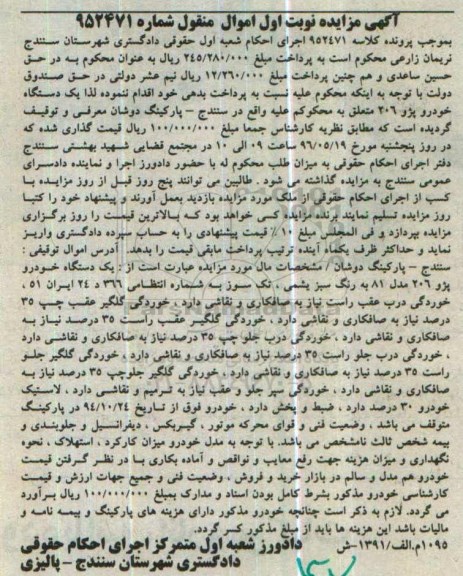 آگهی مزایده نوبت اول اموال منقول شماره ۹۵۲۴۷۱
بموجب پرونده کلاسه ۹۵۲۴۷۱ اجرای احکام شعبه اول حقوقی دادگستری شهرستان سنندج
نریمان زارعی محکوم است به پرداخت مبلغ ۲۴۵/۲۸۰/۰۰۰ ریال به عنوان محکوم به در حق
حسین ساعدی و هم چنین پرداخت مبلغ ۱۲/۲۶۰/۰۰۰ ریال نیم عشر دولتی در حق صندوق
دولت با توجه به اینکه محکوم علیه نسبت به پرداخت بدهی خود اقدام ننموده لذا یک دستگاه
خودرو پژو ۲۰۶ متعلق به محکوکم علیه واقع در سنندج – پارکینگ دوشان معرفی و توقیف
گردیده است که مطابق نظریه کارشناس جمعا مبلغ ۱۰۰/۰۰۰/۰۰۰ ریال قیمت گذاری شده که
در روز پنجشنبه مورخ ۹۶/۰۵/۱۹ ساعت ۰۹ الی ۱۰ در مجتمع قضایی شهید بهشتی سنندج
دفتر اجرای احکام حقوقی به میزان طلب محکوم له با حضور دادورز اجرا و نماینده دادسرای
عمومی سنندج به مزایده گذاشته می شود . طالبین می توانند پنج روز قبل از روز مزایده با
کسب از اجرای احکام حقوقی از ملک مورد مزایده بازدید بعمل آورند و پیشنهاد خود را کتبا
روز مزایده تسلیم نمایند برنده مزایده کسی خواهد بود که بالاترین قیمت را روز برگزاری
مزایده بپردازد و فی المجلس مبلغ ۱۰٪ قیمت پیشنهادی را به حساب سپرده دادگستری واریز
نماید و حداکثر ظرف یکماه آینده ترتیب پرداخت مابقی قیمت را بدهد . آدرس اموال توقیفی :
سنندج – پارکینگ دوشان / مشخصات مال مورد مزایده عبارت است از : یک دستگاه خودرو
پژو ۲۰۶ مدل ۸۱ به رنگ سبز یشمی ، تک سوز به شماره انتظامی ۳۶۶ د ۲۴ ایران ۵۱ ،
خوردگی درب عقب راست نیاز به صافکاری و نقاشی دارد ، خوردگی گلگیر عقب چپ ۳۵
درصد نیاز به صافکاری و نقاشی دارد ، خوردگی گلگیر عقب راست ۳۵ درصد نیاز به
صافکاری و نقاشی دارد ، خوردگی درب جلو چپ ۳۵ درصد نیاز به صافکاری و نقاشی دارد
، خوردگی درب جلو راست ۳۵ درصد نیاز به صافکاری و نقاشی دارد ، خوردگی گلگیر جلو
راست ۳۵ درصد نیاز به صافکاری و نقاشی دارد ، خوردگی گلگیر جلوچپ ۳۵ درصد نیاز به
صافکاری و نقاشی دارد ، خوردگی سپر جلو و عقب نیاز به ترمیم و نقاشی دارد ، لاستیک
خودرو ۳۰ درصد دارد ، ضبط و پخش دارد ، خودرو فوق از تاریخ ۹۴/۱۰/۲۴ در پارکینگ
متوقف می باشد ، وضعیت فنی و قوای محرکه موتور ، گیربکس ، دیفرانسیل و جلوبندی و
بیمه شخص ثالث نامشخص می باشد. با توجه به مدل خودرو میزان کارکرد ، استهلاک ، نحوه
نگهداری و میزان هزینه جهت رفع معایب و نواقص و آماده بکاری با در نظر گرفتن قیمت
خودرو هم مدل و سالم در بازار خرید و فروش ، وضعیت فنی و جمیع جهات ارزش و قیمت
کارشناسی خودرو مذکور بشرط کامل بودن اسناد و مدارک بمبلغ ۱۰۰/۰۰۰/۰۰۰ ریال برآورد
می گردد. لازم به ذکر است چنانچه خودرو مذکور دارای هزینه های پارکینگ و بیمه نامه و
مالیات باشد این هزینه ها باید از مبلغ مذکور کسر گردد.
۱۰۹۵م.الف/۱۳۹۱-ش دادورز شعبه اول متمرکز اجرای احکام حقوقی
دادگستری شهرستان سنندج - پالیزی